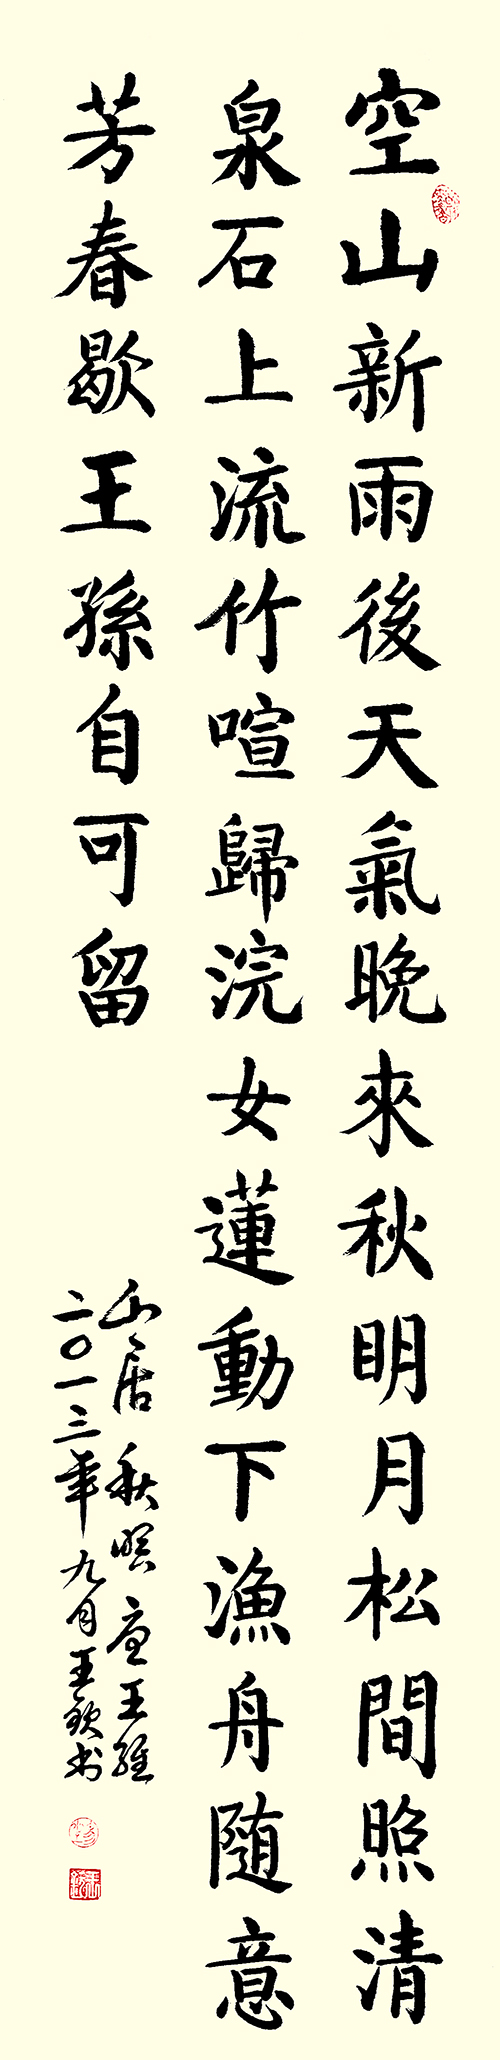 空山新雨後天氣晚來秋明月松間照清
泉石上流竹喧歸浣女蓮動下漁舟隨意
芳春歇王孫自可留
山居秋暝唐王維
二〇一三年九月王欽书